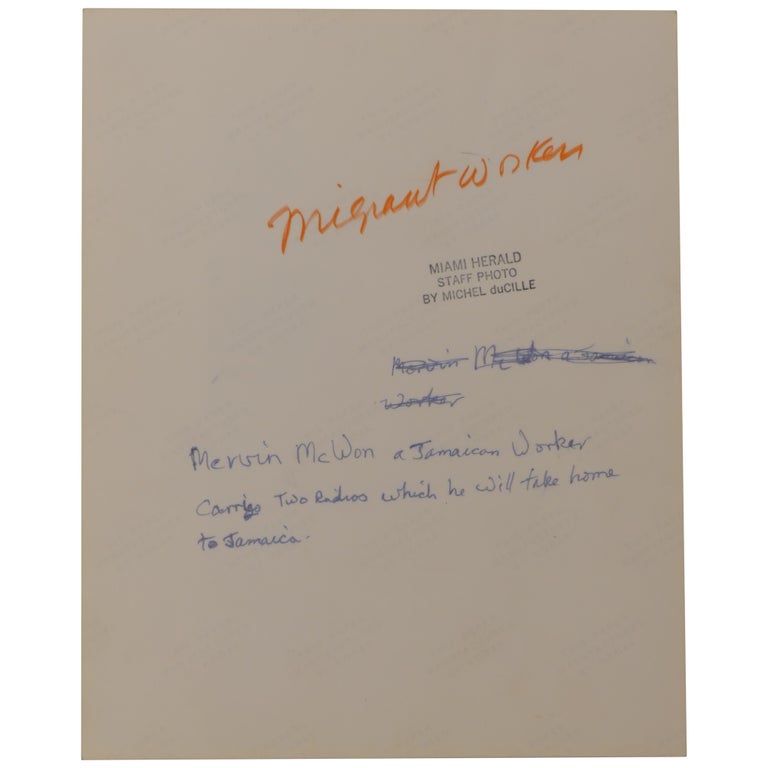 Migrant Worker
MIAMI HERALD
STAFF PHOTO
BY MICHEL duCILLE
Mervin Mc Won a Jamaican
Worker
Mervin McWon a Jamaican Worker
Carries Two Radios which he will take home
to Jamaica.